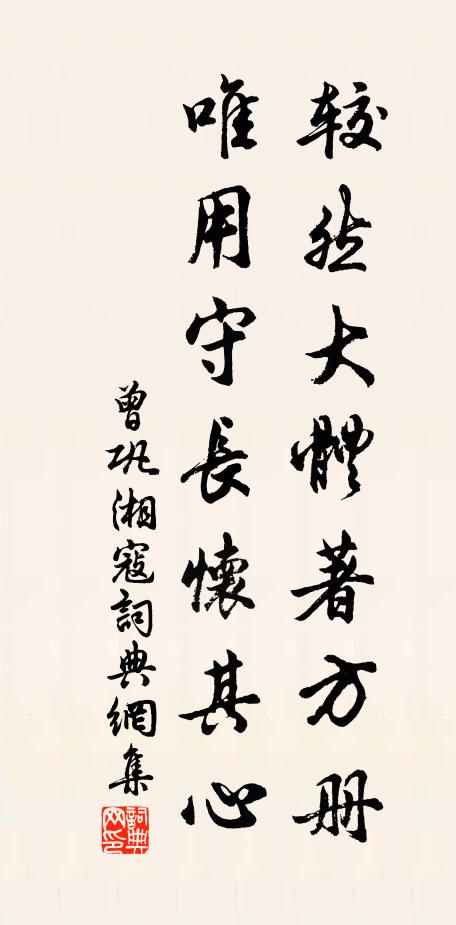 較然大體著方册
唯用守長懷其心
曾巩湘寇詞典網集
詞典網印